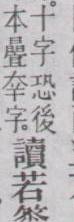 。十字恐後
本疊㚔字。
讀若